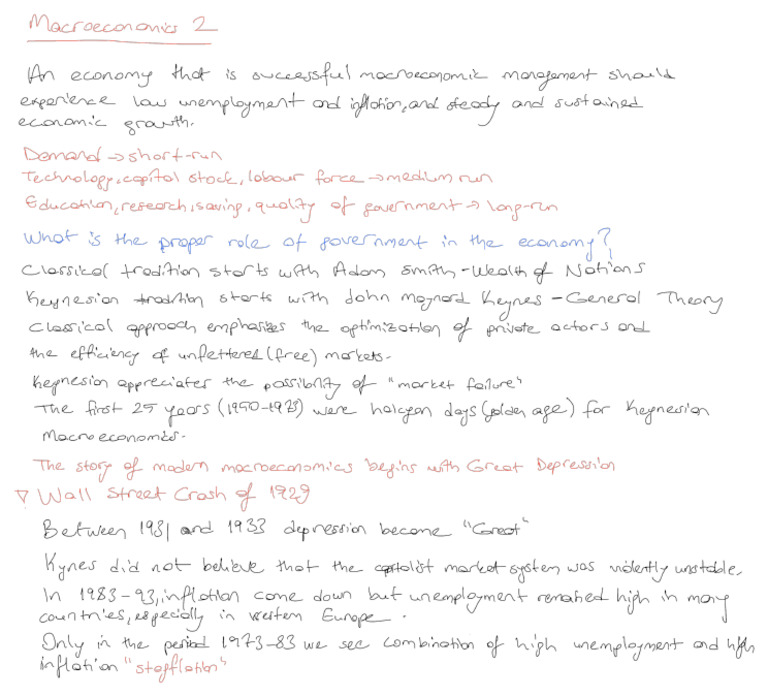 Macroeconomics 2
An economy that is successful macroeconomic management should
experience low unemployment and inflation, and steady and sustained
economic growth.
Demand → short-run
Technology, capital stock, labour force → medium run
Education, research, saving, quality of government → long-run
What is the proper role of government in the economy?
Classical tradition starts with Adam Smith - Wealth of Nations
Keynesian tradition starts with John Maynard Keynes - General Theory
Classical approach emphasizes the optimization of private actors and
the efficiency of unfettered (free) markets.
Keynesian appreciates the possibility of "market failure"
The first 25 years (1950-1973) were halcyon days (golden age) for Keynesian
Macroeconomics.
The story of modern macroeconomics begins with Great Depression
▽ Wall Street Crash of 1929
Between 1931 and 1933 depression become "Great"
Kynes did not believe that the capitalist market system was violently unstable.
In 1983-93, inflation come down but unemployment remained high in many
countries, especially in western Europe.
Only in the period 1973-83 we see combination of high unemployment and high
inflation "stagflation"